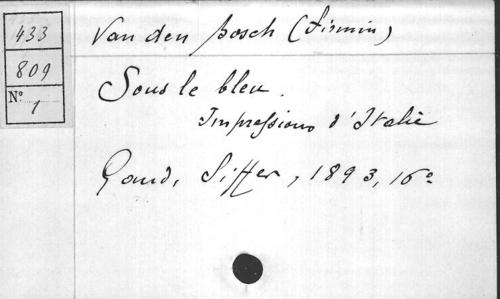 433
809
N° 1
Van den Bosch (Firmin)
Sous le bleu.
Impressions d'Italie
Gand, Siffer, 1893, 16°